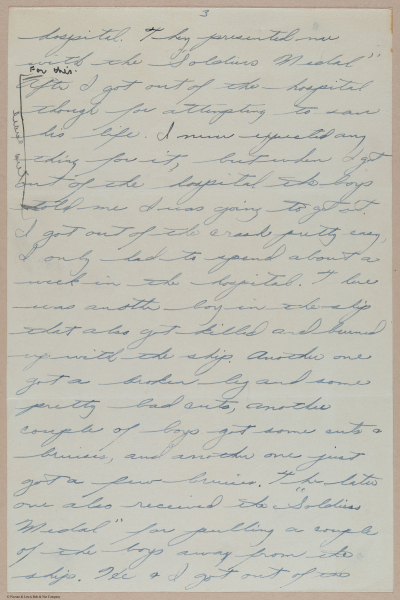 3
hospital. They presented me
with the "Soldiers Medal"
For this.
After I got out of the hospital
though for attempting to save
his life. I never expected any
thing for it, but when I got
out of the hospital the boys
told me I was going to get it.
I got out of the crash pretty easy,
I only had to spend about a
week in the hospital. There
was another boy in the ship
that also got killed and burned
up with the ship. Another one
got a broken leg and some
pretty bad cuts, another
couple of boys got some cuts &
bruises, and another one just
got a few bruises. The later
one also received the "Soldiers
Medal" for pulling a couple
of the boys away from the
ship. He & I got out of the